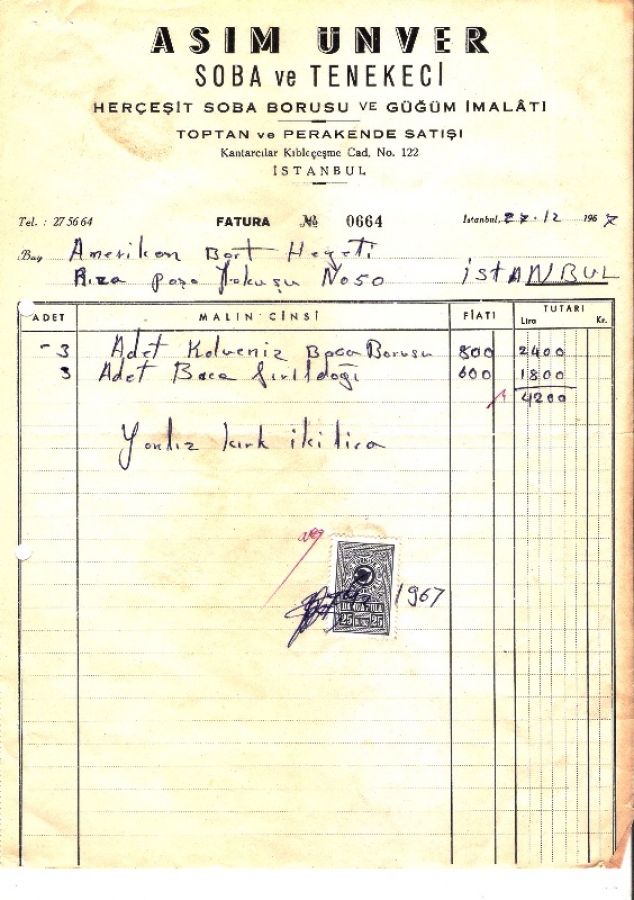 ASIM ÜNVER
SOBA ve TENEKECİ
HERÇEŞİT SOBA BORUSU VE GÜĞÜM İMALÂTI
TOPTAN ve PERAKENDE SATIŞI
Kantarcılar Kıbleçeşme Cad. No. 122
İSTANBUL
Tel. : 27 56 64 FATURA № 0664 İstanbul, 27.12 1967
Bay Amerikan Bort Heyeti
Rıza paşa Yokuşu No 50 İSTANBUL
ADET MALIN CİNSİ FİATI TUTARI
Lira Kr.
3 Adet Kalveniz Baca Borusu 800 2400
3 Adet Baca 600 1800
4200
Yanlız kırk iki lira
1967
DAMGA PULU
25 25